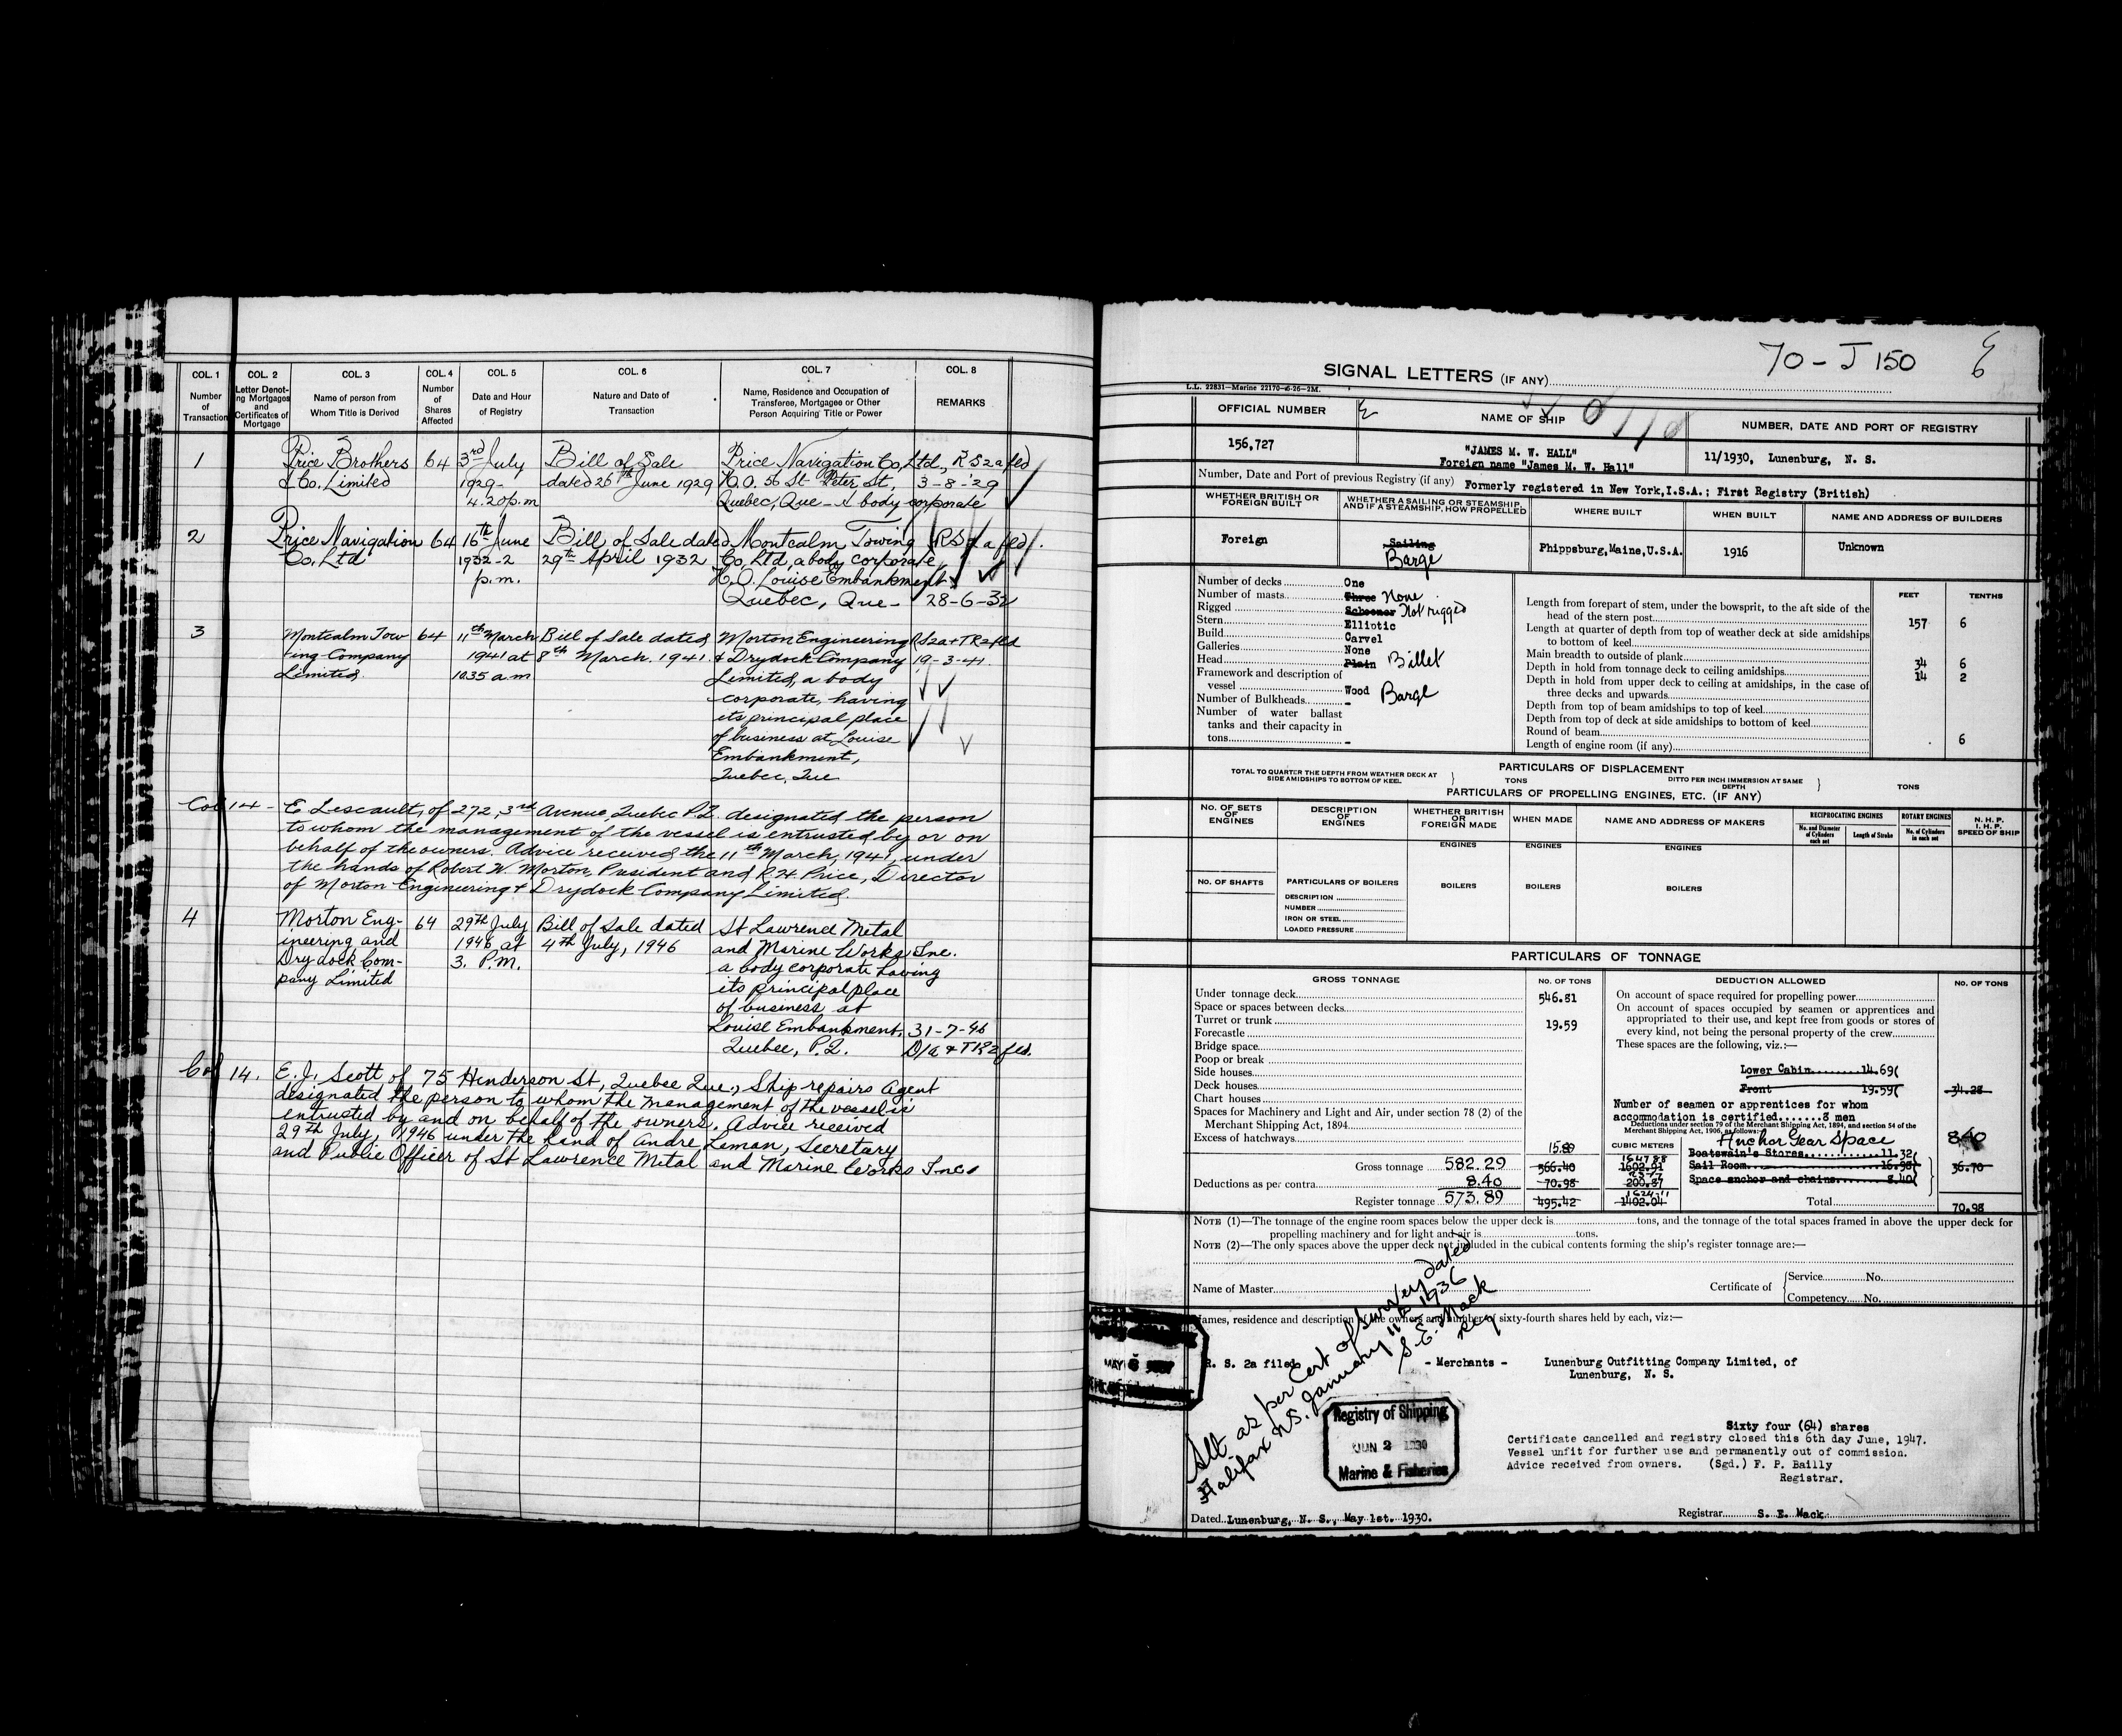 COL. 1 COL. 2 COL. 3 COL. 4 COL. 5 COL. 6 COL. 7 COL. 8
Number of Transaction
Letter Denoting Mortgages and Certificates of Mortgage
Name of person from Whom Title is Derived
Number of Shares Affected
Date and Hour of Registry
Nature and Date of Transaction
Name, Residence and Occupation of Transferee, Mortgagee or Other Person Acquiring Title or Power
REMARKS
1 Price Brothers 64 3rd July Bill of Sale Price Navigation Co, Ltd., RS2a fld
& Co. Limited 1929- dated 26th June 1929 H.O. 56 St Peter St, 3-8-'29
4.20 p.m Quebec, Que - A body corporate
2 Price Navigation 64 16th June Bill of Sale dated Montcalm Towing RS2a fld.
Co. Ltd 1932-2 29th April 1932 Co, Ltd, a body corporate,
p.m. H.O. Louise Embankment
Quebec, Que- 28-6-32
3 Montcalm Tow- 64 11th March Bill of Sale dated Morton Engineering RS2a+TR2fld
ing Company 1941 at 8th March. 1941. & Drydock Company 19-3-41
Limited. 10.35 a.m Limited, a body
corporate, having
its principal place
of business at Louise
Embankment,
Quebec, Que
Col 14 - E Lescault, of 272, 3rd Avenue Quebec P.Q. designated the person
to whom the management of the vessel is entrusted by or on
behalf of the owners. Advice received the 11th March, 1941, under
the hands of Robert W. Morton, President and R.H. Price, Director
of Morton Engineering & Drydock Company Limited.
4 Morton Eng- 64 29th July Bill of Sale dated St Lawrence Metal
ineering and 1946 at 4th July, 1946 and Marine Works Inc.
Dry dock Com- 3. P.M. a body corporate having
pany Limited its principal place
of business at
Louise Embankment, 31-7-46
Quebec, P.Q. D/a & TR2 fld.
Col 14. E.J. Scott of 75 Henderson St, Quebec Que., Ship repairs Agent
designated the person to whom the management of the vessel is
entrusted by and on behalf of the owners. Advice received
29th July, 1946 under the hand of Andre Leman, Secretary
and Public Officer of St Lawrence Metal and Marine Works Inc.
70 - J 150
SIGNAL LETTERS (IF ANY)
L.L. 22831—Marine 22170—6-26—2M.
OFFICIAL NUMBER NAME OF SHIP NUMBER, DATE AND PORT OF REGISTRY
156,727 "JAMES M. W. HALL" 11/1930, Lunenburg, N. S.
Foreign name "James M. W. Hall"
Number, Date and Port of previous Registry (if any) Formerly registered in New York,I.S.A.; First Registry (British)
WHETHER BRITISH OR FOREIGN BUILT
WHETHER A SAILING OR STEAMSHIP, AND IF A STEAMSHIP, HOW PROPELLED
WHERE BUILT
WHEN BUILT
NAME AND ADDRESS OF BUILDERS
Foreign Sailing Phippsburg,Maine,U.S.A. 1916 Unknown
Barge
Number of decks One
Number of masts Three None
Rigged Schooner Not rigged
Stern Elliptic
Build Carvel
Galleries None
Head Plain Billet
Framework and description of vessel Wood Barge
Number of Bulkheads -
Number of water ballast tanks and their capacity in tons -
FEET TENTHS
Length from forepart of stem, under the bowsprit, to the aft side of the head of the stern post 157 6
Length at quarter of depth from top of weather deck at side amidships to bottom of keel
Main breadth to outside of plank 34 6
Depth in hold from tonnage deck to ceiling amidships 14 2
Depth in hold from upper deck to ceiling at amidships, in the case of three decks and upwards
Depth from top of beam amidships to top of keel
Depth from top of deck at side amidships to bottom of keel
Round of beam 6
Length of engine room (if any)
PARTICULARS OF DISPLACEMENT
TOTAL TO QUARTER THE DEPTH FROM WEATHER DECK AT SIDE AMIDSHIPS TO BOTTOM OF KEEL } TONS DITTO PER INCH IMMERSION AT SAME DEPTH } TONS
PARTICULARS OF PROPELLING ENGINES, ETC. (IF ANY)
NO. OF SETS OF ENGINES
DESCRIPTION OF ENGINES
WHETHER BRITISH OR FOREIGN MADE
WHEN MADE
NAME AND ADDRESS OF MAKERS
RECIPROCATING ENGINES
No. and Diameter of Cylinders each set
Length of Stroke
ROTARY ENGINES
No. of Cylinders in each set
N. H. P.
I. H. P.
SPEED OF SHIP
ENGINES ENGINES ENGINES
NO. OF SHAFTS PARTICULARS OF BOILERS BOILERS BOILERS BOILERS
DESCRIPTION
NUMBER
IRON OR STEEL
LOADED PRESSURE
PARTICULARS OF TONNAGE
GROSS TONNAGE NO. OF TONS DEDUCTION ALLOWED NO. OF TONS
Under tonnage deck 546.81
Space or spaces between decks
Turret or trunk 19.59
Forecastle
Bridge space
Poop or break
Side houses
Deck houses
Chart houses
Spaces for Machinery and Light and Air, under section 78 (2) of the Merchant Shipping Act, 1894
Excess of hatchways 15.89
Gross tonnage 582.29 566.40 1647.88 1602.91
Deductions as per contra 8.40 70.98 23.77 200.87
Register tonnage 573.89 495.42 1624.11 1402.04
CUBIC METERS
On account of space required for propelling power
On account of spaces occupied by seamen or apprentices and appropriated to their use, and kept free from goods or stores of every kind, not being the personal property of the crew
These spaces are the following, viz.:—
Lower Cabin 14.69
Front 19.59 34.28
Number of seamen or apprentices for whom
accommodation is certified 8 men
Deductions under section 79 of the Merchant Shipping Act, 1894, and section 54 of the Merchant Shipping Act, 1906, as follows:
Anchor Gear Space 8.40
Boatswain's Stores 11.32
Sail Room 16.98 36.70
Space anchor and chains 8.40
Total 70.98
NOTE (1)—The tonnage of the engine room spaces below the upper deck is tons, and the tonnage of the total spaces framed in above the upper deck for propelling machinery and for light and air is tons.
NOTE (2)—The only spaces above the upper deck not included in the cubical contents forming the ship's register tonnage are:—
Name of Master Certificate of Service No.
Competency No.
Names, residence and description of the owners and number of sixty-fourth shares held by each, viz:—
R. S. 2a filed - Merchants - Lunenburg Outfitting Company Limited, of
Lunenburg, N. S.
Alt as per Cert of Survey dated
Halifax N.S. January 11th 1936
S. E. Mack
Reg
MAY
Registry of Shipping
JUN 2 1930
Marine & Fisheries
Sixty four (64) shares
Certificate cancelled and registry closed this 6th day June, 1947.
Vessel unfit for further use and permanently out of commission.
Advice received from owners. (Sgd.) F. P. Bailly
Registrar.
Dated Lunenburg, N. S., May 1st. 1930. Registrar S. E. Mack